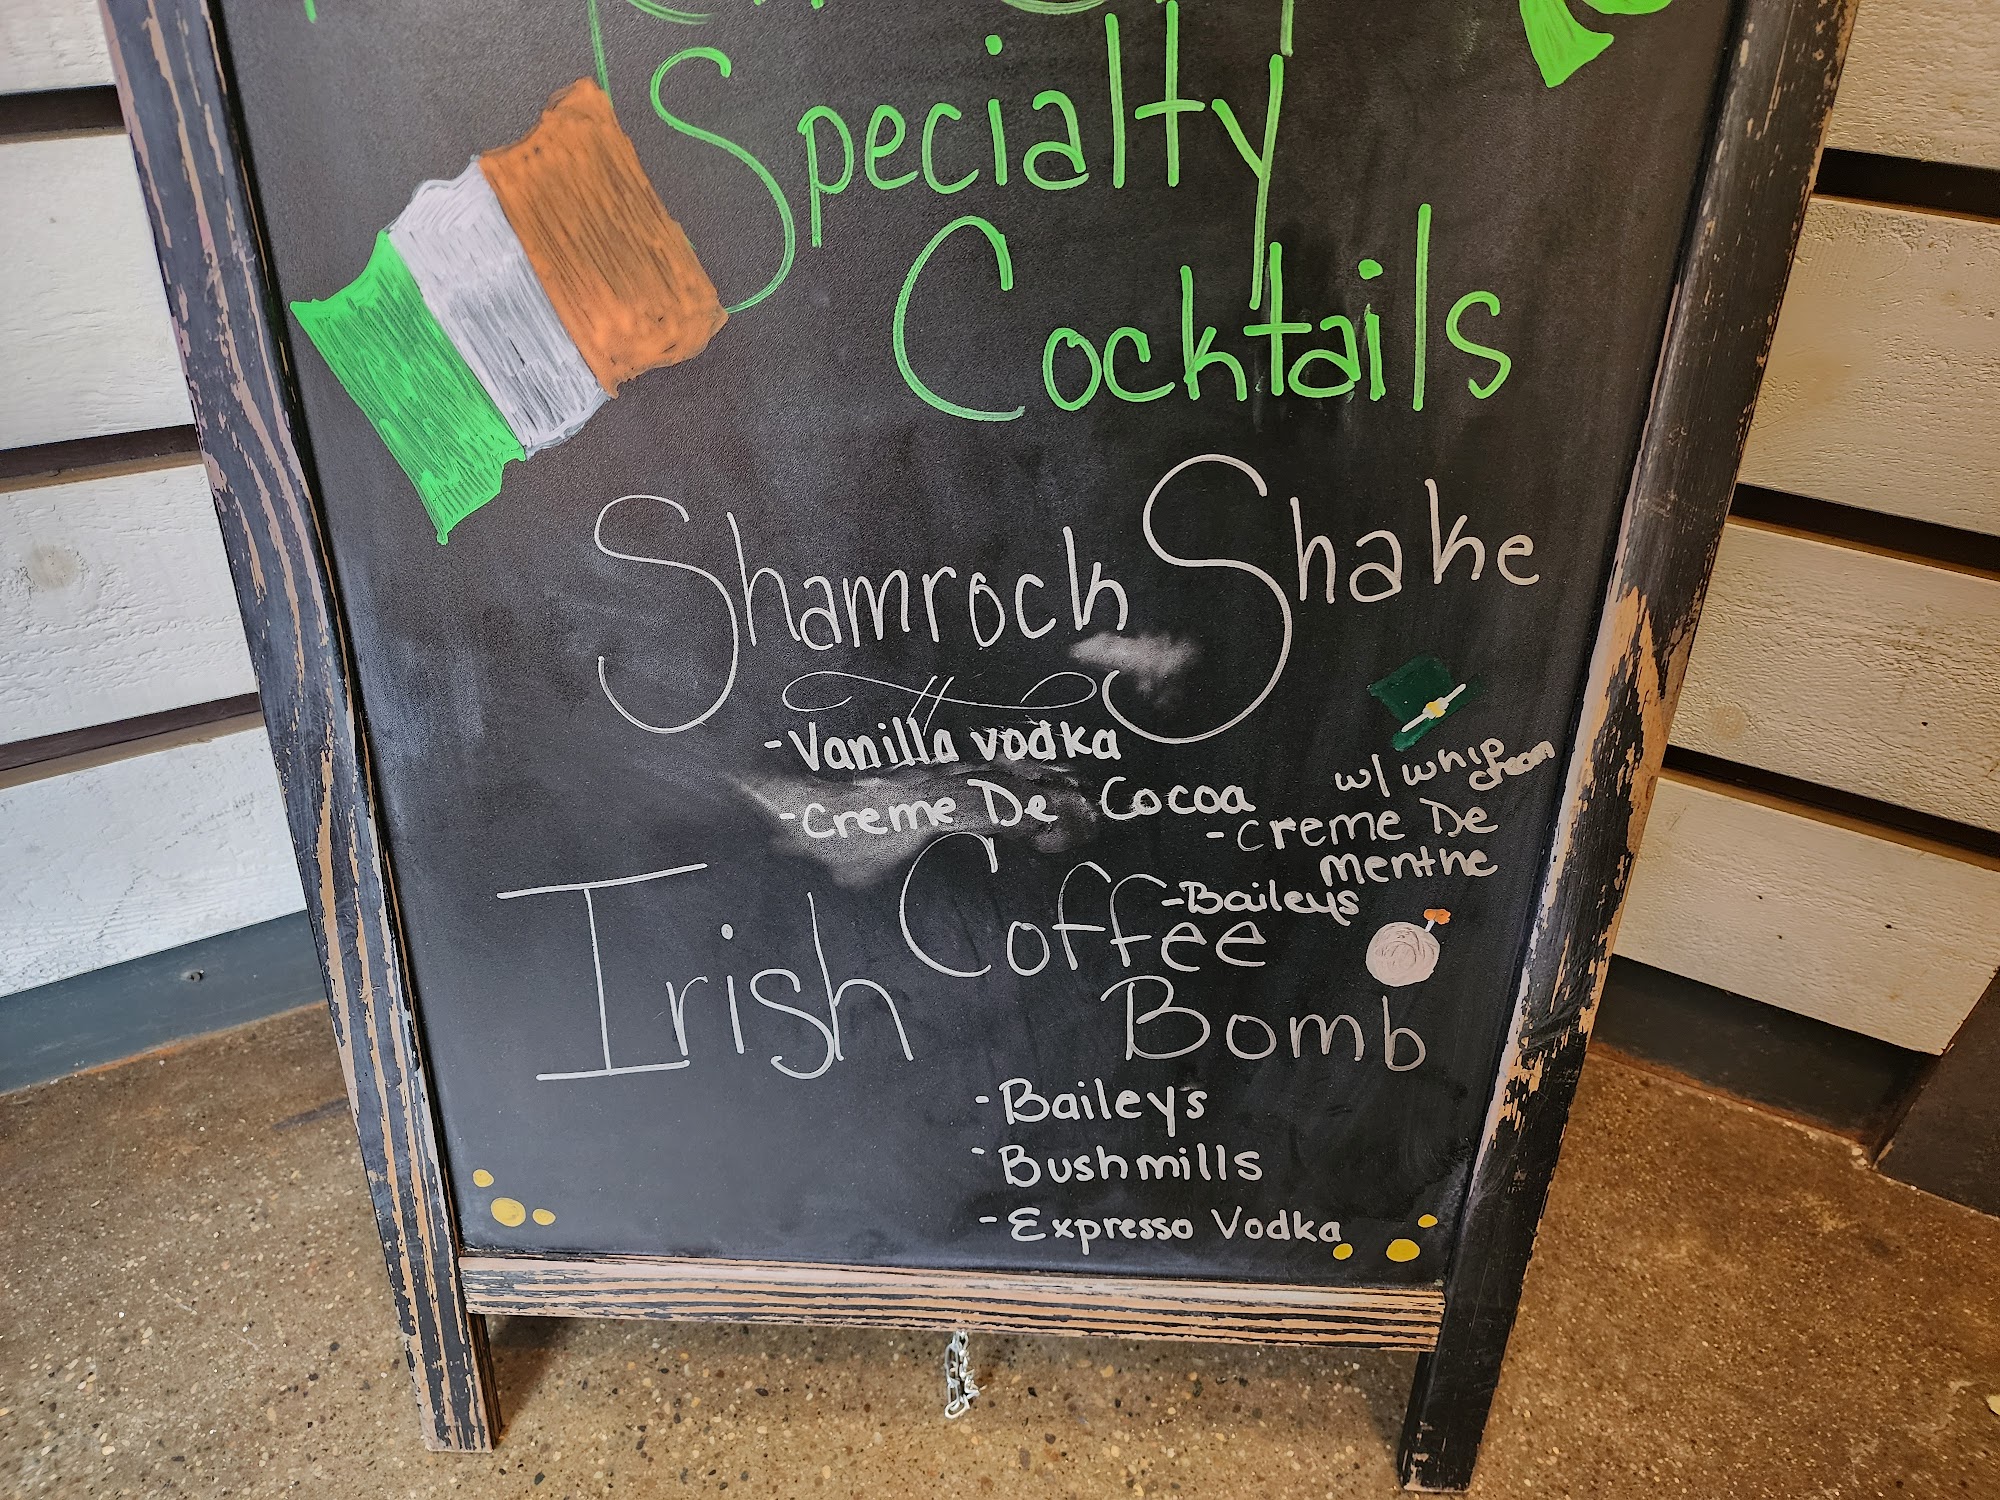 Specialty
Cocktails
Shamrock Shake
-Vanilla vodka
-Creme De Cocoa
w/ whip cream
-Creme De
menthe
-Baileys
Irish Coffee
Bomb
-Baileys
-Bushmills
-Expresso Vodka